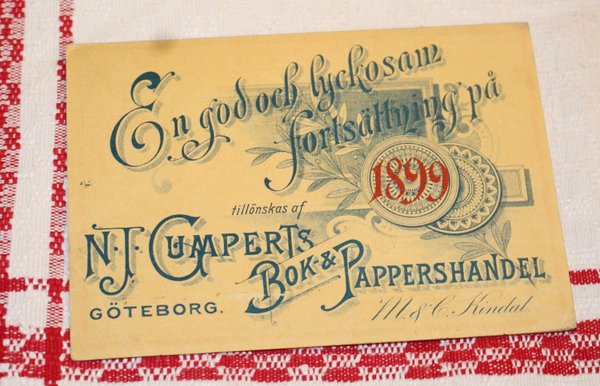 En god och lyckosam
fortsättning på
1899
tillönskas af
N.J. GUMPERTS
BOK & PAPPERSHANDEL
GÖTEBORG.
M. & C. Kindal